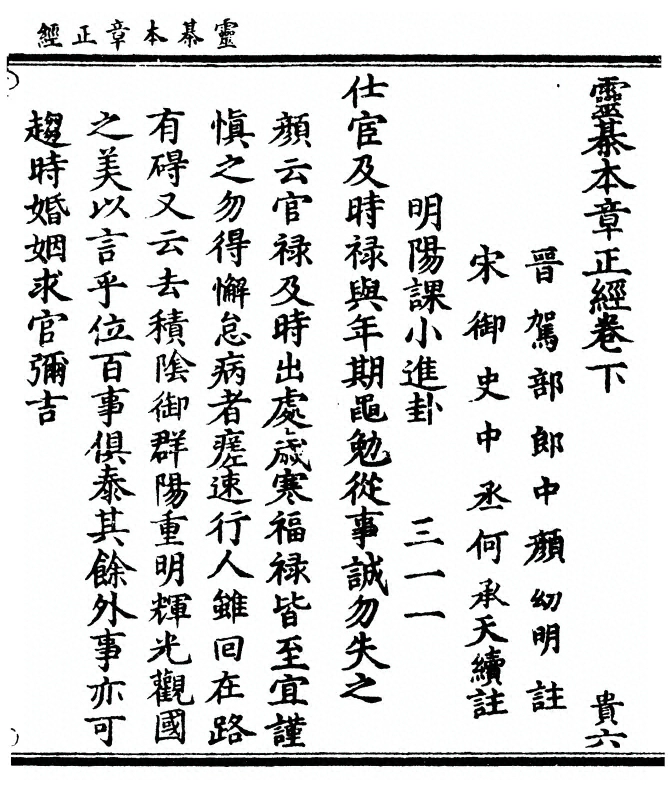 靈棊本章正經
靈棊本章正經卷下
貴六
晉駕部郎中顏幼明註
宋御史中丞何承天續註
明陽課小進卦 三一一
仕宦及時祿與年期黽勉從事誠勿失之
顏云官祿及時出處歲寒福祿皆至宜謹
慎之勿得懈怠病者瘥速行人雖回在路
有碍又云去積陰御群陽重明輝光觀國
之美以言乎位百事俱泰其餘外事亦可
趨時婚姻求官彌吉